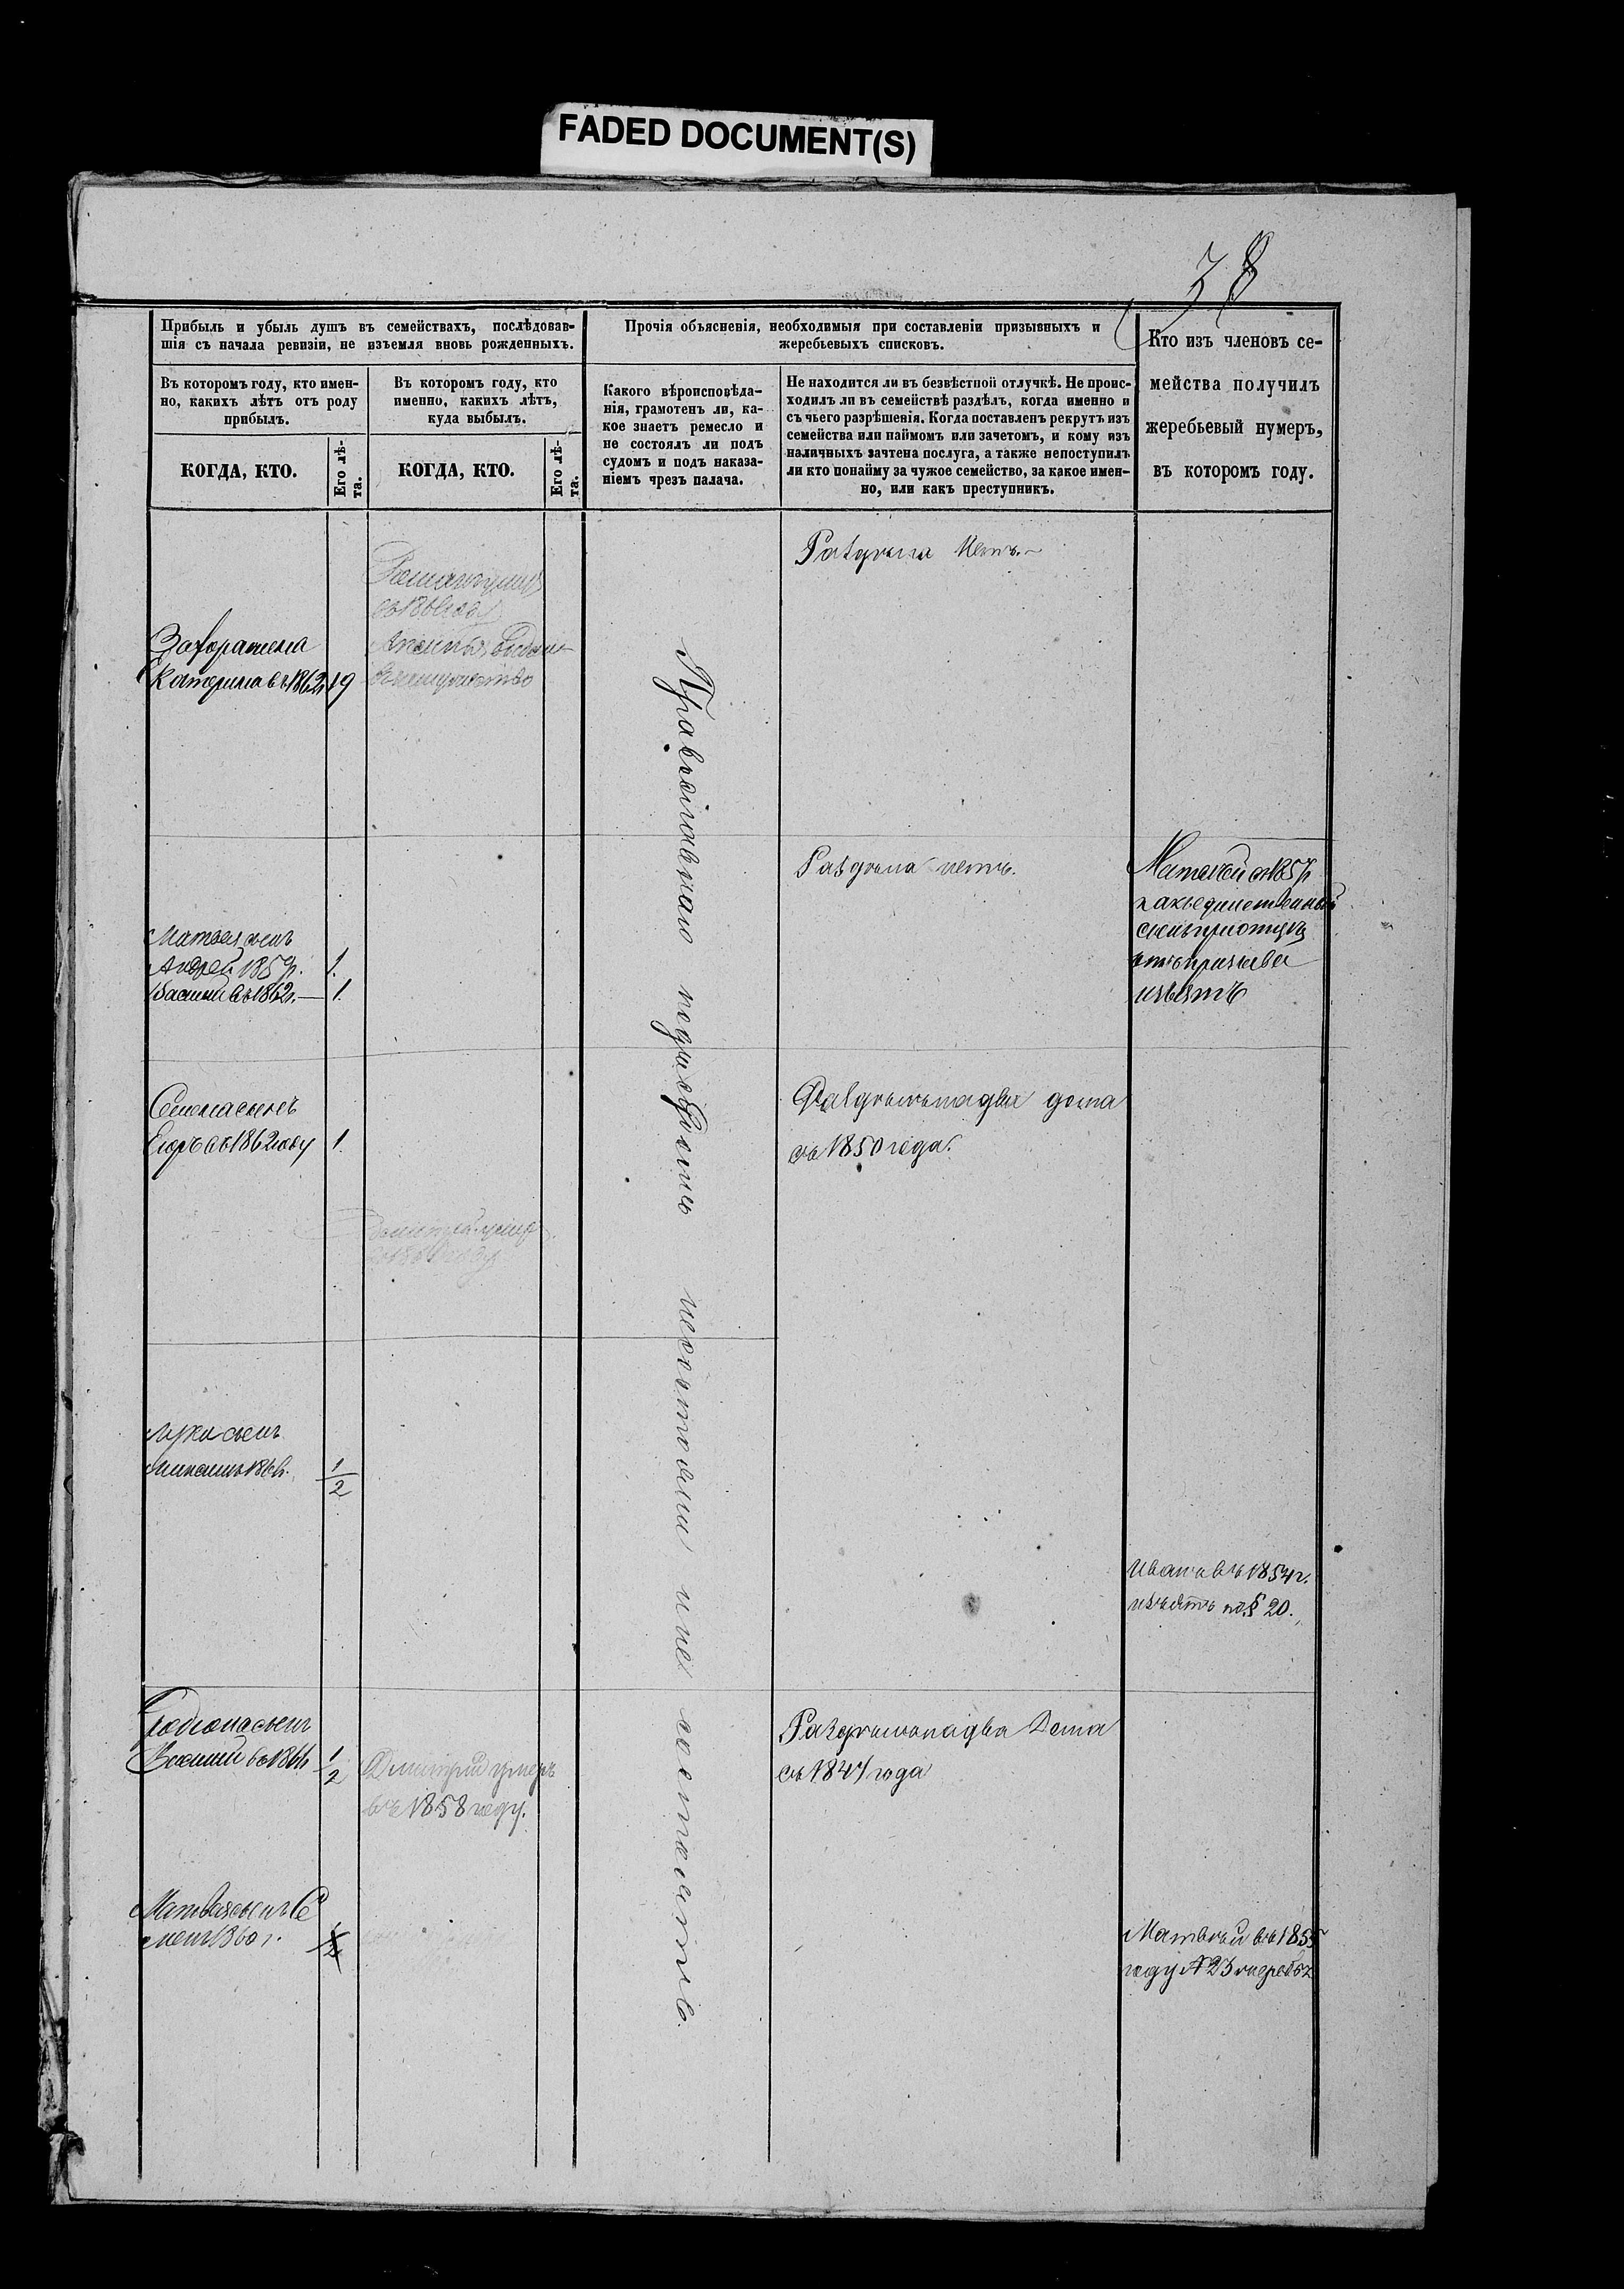 FADED DOCUMENT(S)
38
Прибыль и убыль душъ въ семействахъ, послѣдовав-
шія съ начала ревизіи, не изъемля вновь рожденныхъ.
Прочія объясненія, необходимыя при составленіи призывныхъ и
жеребьевыхъ списковъ.
Кто изъ членовъ се-
мейства получилъ
жеребьевый нумеръ,
въ которомъ году.
Въ которомъ году, кто имен-
но, какихъ лѣтъ отъ роду
прибылъ.
Въ которомъ году, кто
именно, какихъ лѣтъ,
куда выбылъ.
Какого вѣроисповѣда-
нія, грамотенъ ли, ка-
кое знаетъ ремесло и
не состоялъ ли подъ
судомъ и подъ наказа-
ніемъ чрезъ палача.
Не находится ли въ безвѣстной отлучкѣ. Не проис-
ходилъ ли въ семействѣ раздѣлъ, когда именно и
съ чьего разрѣшенія. Когда поставленъ рекрутъ изъ
семейства или наймомъ или зачетомъ, и кому изъ
наличныхъ зачтена послуга, а также непоступилъ
ли кто понайму за чужое семейство, за какое имен-
но, или какъ преступникъ.
КОГДА, КТО.
Его лѣ-
та.
КОГДА, КТО.
Его лѣ-
та.
Раздѣла Нетъ.
Захара жена
Катерина въ 1862г 19
въ замужество
Православнаго подсудомъ несостояли и не состоятъ
Раздѣла нетъ.
Матвей въ 1857г
какъ единственный
сынъ при отцѣ
отъ призыва
изъятъ
Матвея сынъ
Андрей 1859г. 1.
Василий въ 1862г. — 1.
Семена сынъ
Егоръ въ 1862 году 1.
Разделъ на два дома
съ 1850 года.
сынъ
1/2
Иванъ въ 1854г.
изъятъ по § 20.
Родиона сынъ
Василий въ 1861г 1/2
Дмитрий умеръ
въ 1858 году.
Разделъ на два Дома
съ 1847 года
Матвея сынъ Се
менъ 1860 г.
Матвей въ 1855
году № 23